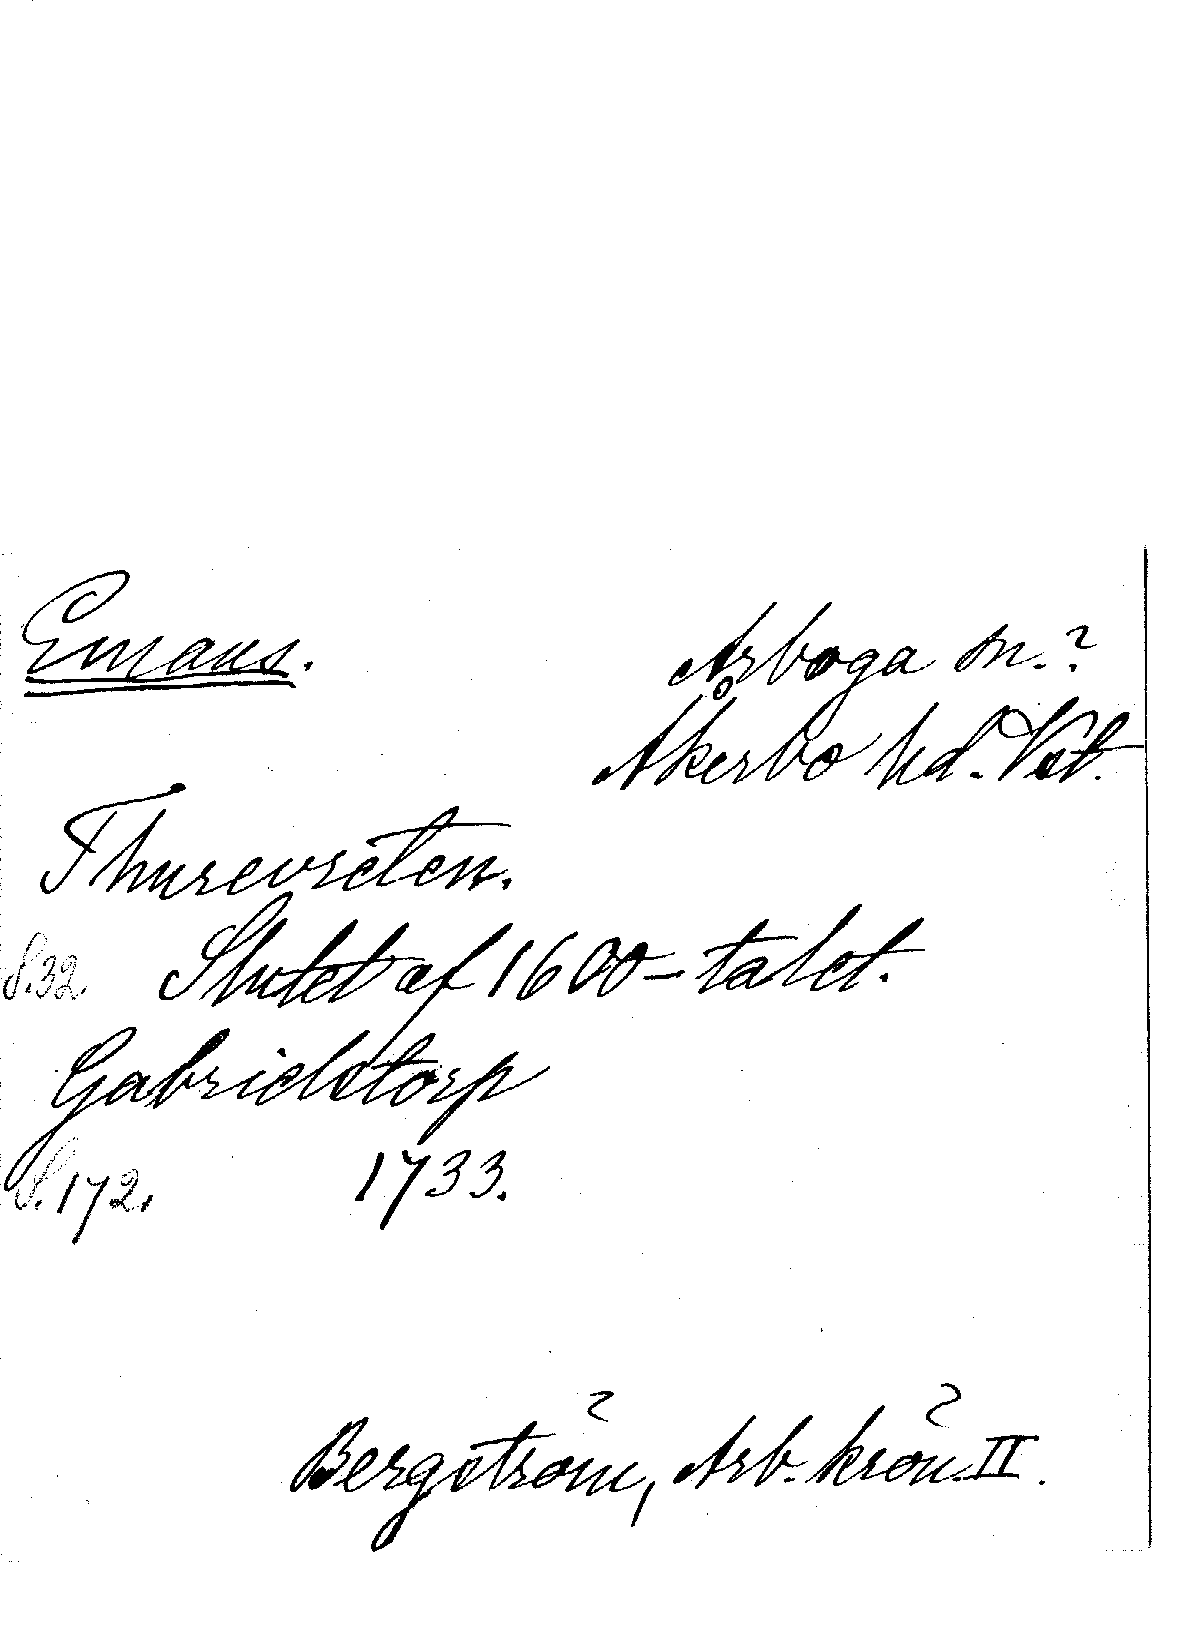 Emaus.
Arboga sn.?
Åkerbo hd. Vstl.
Thurevreten.
S.32. Slutet af 1600-talet.
Gabrielstorp
S.172. 1733.
Bergström, Arb. krön. II.